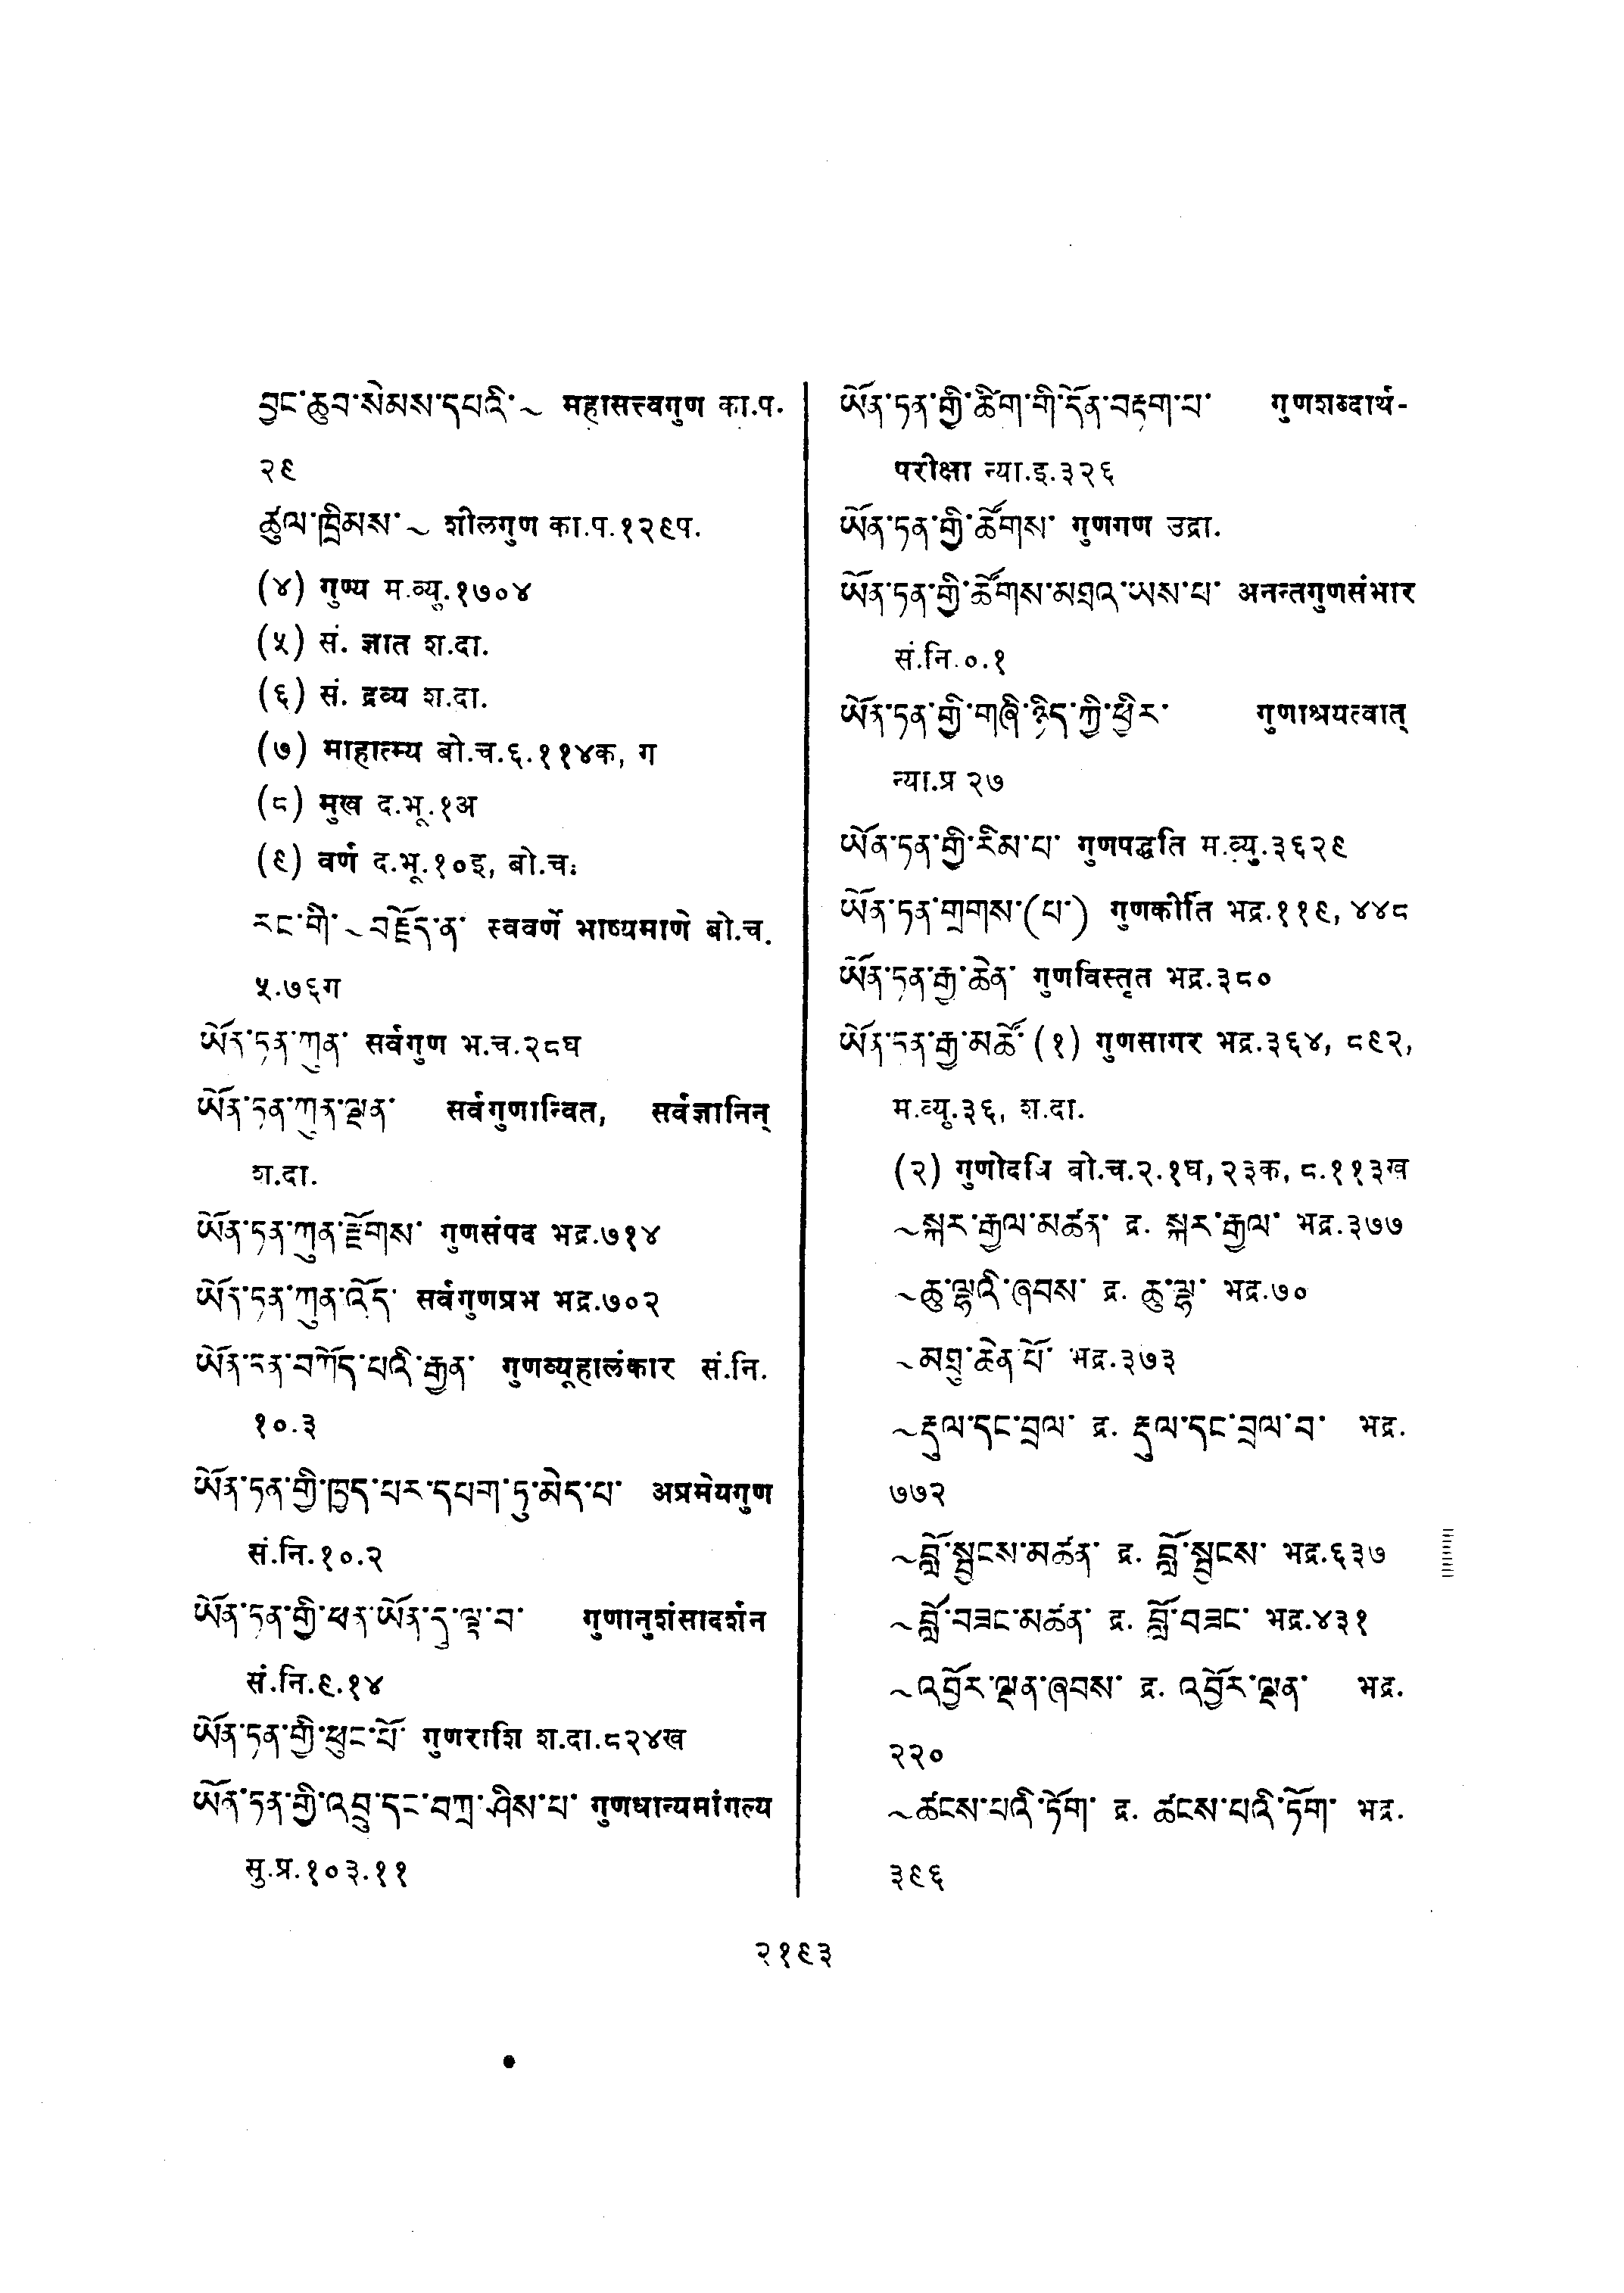 བྱང་ཆུབ་སེམས་དཔའི་~ महासत्त्वगुण का.प.
२९
ཚུལ་ཁྲིམས་~ शीलगुण का.प.१२९प.
(४) गुण्य म.व्यु.१७०४
(५) सं. ज्ञात श.दा.
(६) सं. द्रव्य श.दा.
(७) माहात्म्य बो.च.६.११४क, ग
(८) मुख द.भू.१अ
(९) वर्ण द.भू.१०इ, बो.च:
རང་གི་~བརྗོད་ན་ स्ववर्णे भाष्यमाणे बो.च.
५.७६ग
ཡོན་ཏན་ཀུན་ सर्वगुण भ.च.२८घ
ཡོན་ཏན་ཀུན་ལྡན་ सर्वगुणान्वित, सर्वज्ञानिन्
श.दा.
ཡོན་ཏན་ཀུན་རྫོགས་ गुणसंपद भद्र.७१४
ཡོན་ཏན་ཀུན་འོད་ सर्वगुणप्रभ भद्र.७०२
ཡོན་ཏན་བཀོད་པའི་རྒྱན་ गुणव्यूहालंकार सं.नि.
१०.३
ཡོན་ཏན་གྱི་ཁྱད་པར་དཔག་ཏུ་མེད་པ་ अप्रमेयगुण
सं.नि.१०.२
ཡོན་ཏན་གྱི་ཕན་ཡོན་དུ་ལྟ་བ་ गुणानुशंसादर्शन
सं.नि.९.१४
ཡོན་ཏན་གྱི་ཕུང་པོ་ गुणराशि श.दा.८२४ख
ཡོན་ཏན་གྱི་འབྲུ་དང་བཀྲ་ཤིས་པ་ गुणधान्यमांगल्य
सु.प्र.१०३.११
ཡོན་ཏན་གྱི་ཚིག་གི་དོན་བརྟག་པ་ गुणशब्दार्थ-
परीक्षा न्या.इ.३२६
ཡོན་ཏན་གྱི་ཚོགས་ गुणगण उद्रा.
ཡོན་ཏན་གྱི་ཚོགས་མཐའ་ཡས་པ་ अनन्तगुणसंभार
सं.नि.०.१
ཡོན་ཏན་གྱི་གཞི་ཉིད་ཀྱི་ཕྱིར་ गुणाश्रयत्वात्
न्या.प्र २७
ཡོན་ཏན་གྱི་རིམ་པ་ गुणपद्धति म.व्यु.३६२९
ཡོན་ཏན་གྲགས་(པ་) गुणकीर्ति भद्र.११९, ४४८
ཡོན་ཏན་རྒྱ་ཆེན་ गुणविस्तृत भद्र.३८०
ཡོན་ཏན་རྒྱ་མཚོ་ (१) गुणसागर भद्र.३६४, ८९२,
म.व्यु.३६, श.दा.
(२) गुणोदधि बो.च.२.१घ, २३क, ८.११३ख
~སྐར་རྒྱལ་མཚན་ द्र. སྐར་རྒྱལ་ भद्र.३७७
~ཆུ་ལྷའི་ཞབས་ द्र. ཆུ་ལྷ་ भद्र.७०
~མཐུ་ཆེན་པོ་ भद्र.३७३
~རྡུལ་དང་བྲལ་ द्र. རྡུལ་དང་བྲལ་བ་ भद्र.
७७२
~བློ་སྦྱངས་མཚན་ द्र. བློ་སྦྱངས་ भद्र.६३७
~བློ་བཟང་མཚན་ द्र. བློ་བཟང་ भद्र.४३१
~འབྱོར་ལྡན་ཞབས་ द्र. འབྱོར་ལྡན་ भद्र.
२२०
~ཚངས་པའི་ཏོག་ द्र. ཚངས་པའི་ཏོག་ भद्र.
३९६
२१९३